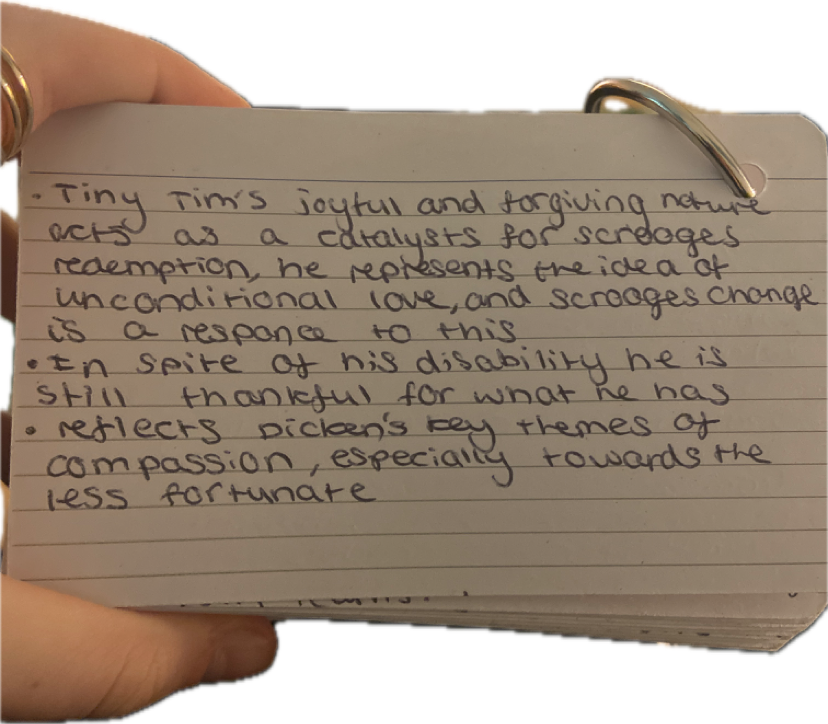 • Tiny Tim's joyful and forgiving nature
acts as a catalysts for scrooges
redemption, he represents the idea of
unconditional love, and scrooges change
is a responce to this
• In spite of his disability he is
still thankful for what he has
• reflects Dicken's key themes of
compassion, especially towards the
less fortunate